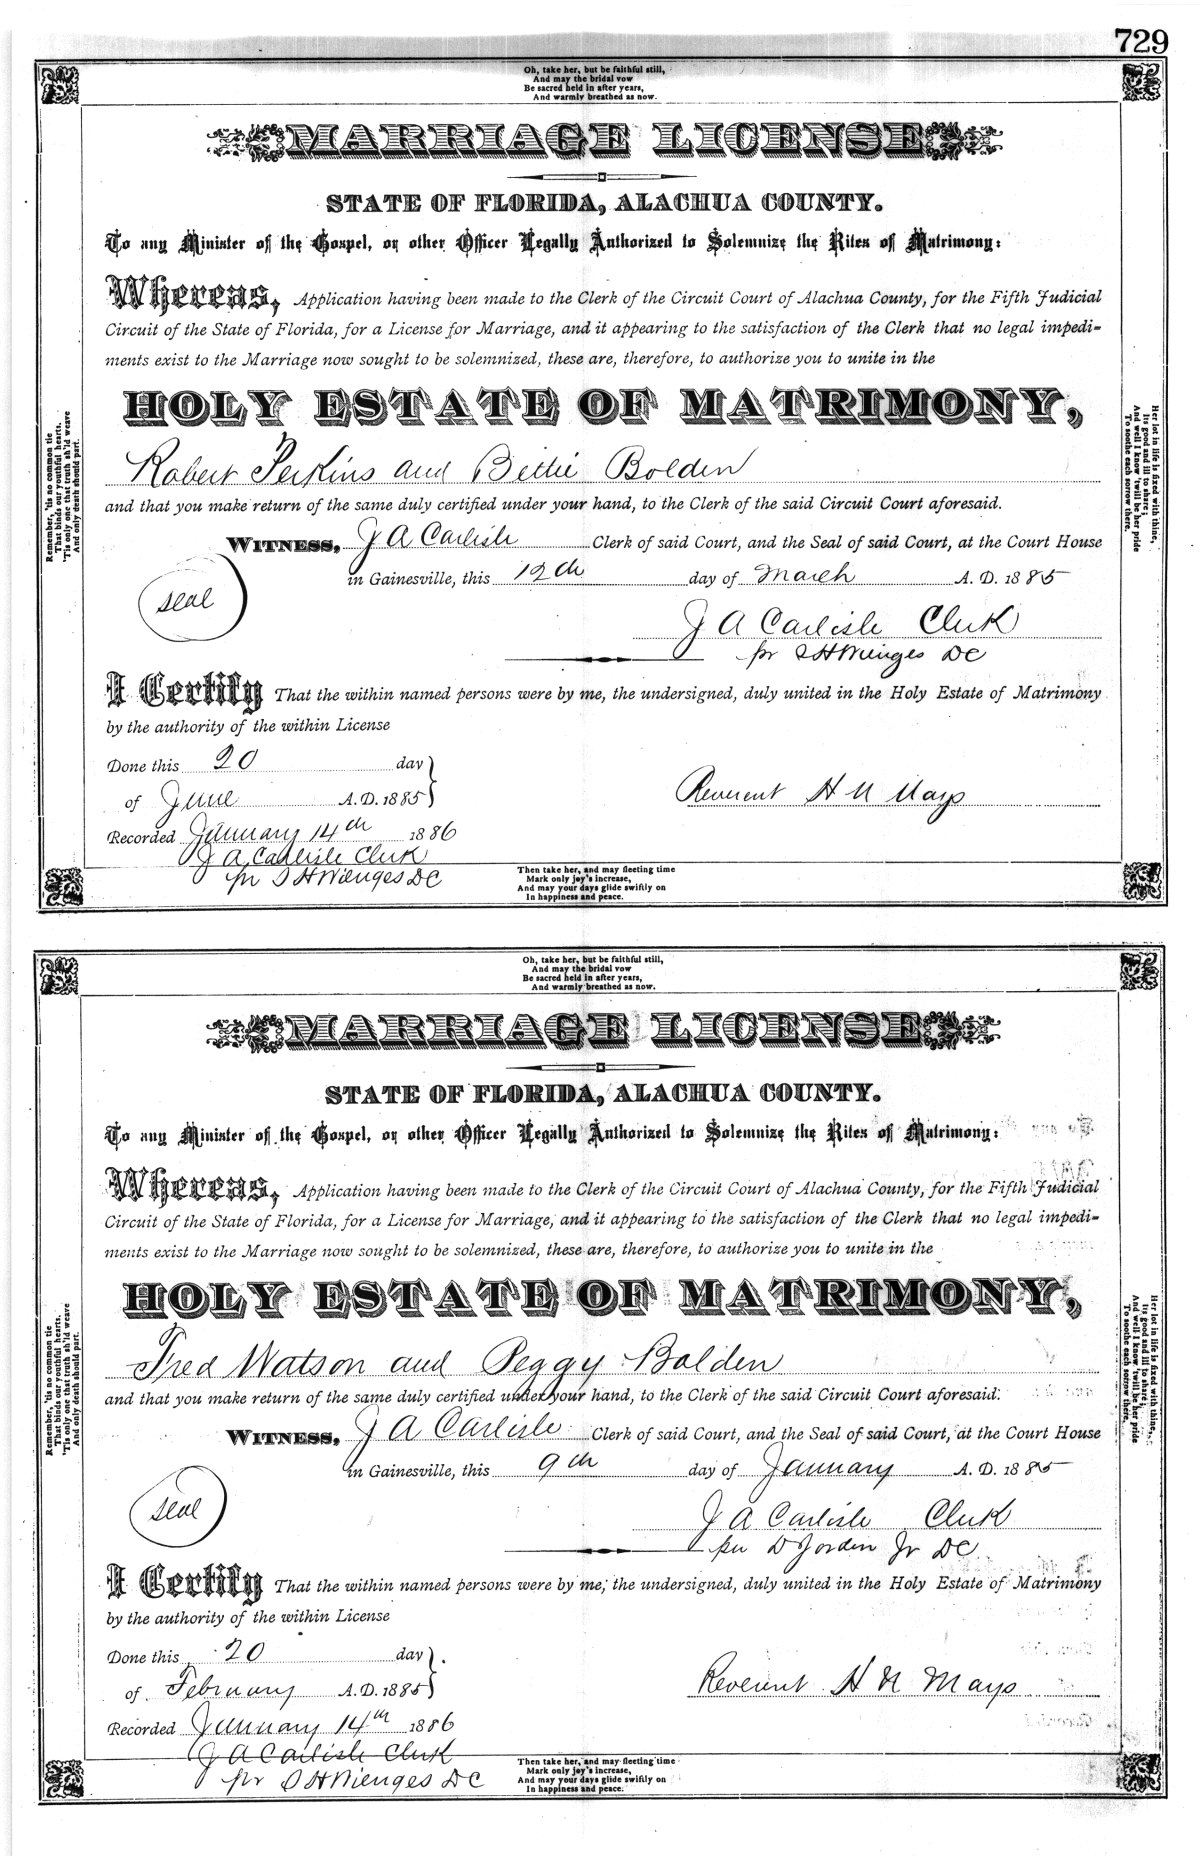 729
Oh, take her, but be faithful still,
And may the bridal vow
Be sacred held in after years,
And warmly breathed as now.
MARRIAGE LICENSE
STATE OF FLORIDA, ALACHUA COUNTY.
To any Minister of the Gospel, or other Officer Legally Authorized to Solemnize the Rites of Matrimony:
Whereas, Application having been made to the Clerk of the Circuit Court of Alachua County, for the Fifth Judicial
Circuit of the State of Florida, for a License for Marriage, and it appearing to the satisfaction of the Clerk that no legal impedi-
ments exist to the Marriage now sought to be solemnized, these are, therefore, to authorize you to unite in the
HOLY ESTATE OF MATRIMONY,
Robert Perkins and Bettie Bolden
and that you make return of the same duly certified under your hand, to the Clerk of the said Circuit Court aforesaid.
WITNESS, J A Carlisle Clerk of said Court, and the Seal of said Court, at the Court House
in Gainesville, this 12th day of March A. D. 1885
seal
J A Carlisle Clerk
pr S H Wienges DC
I Certify That the within named persons were by me, the undersigned, duly united in the Holy Estate of Matrimony
by the authority of the within License
Done this 20 day
of June A.D. 1885
Reverent H N Mays
Recorded January 14th 1886
J A Carlisle Clerk
pr S H Wienges DC
Then take her, and may fleeting time
Mark only joy's increase,
And may your days glide swiftly on
In happiness and peace.
Remember, 'tis no common tie
That binds our youthful hearts,
'Tis only one that truth sh'ld weave
And only death should part.
Her lot in life is fixed with thine,
Its good and ill to share;
And well I know 'twill be her pride
To soothe each sorrow there.
Oh, take her, but be faithful still,
And may the bridal vow
Be sacred held in after years,
And warmly breathed as now.
MARRIAGE LICENSE
STATE OF FLORIDA, ALACHUA COUNTY.
To any Minister of the Gospel, or other Officer Legally Authorized to Solemnize the Rites of Matrimony:
Whereas, Application having been made to the Clerk of the Circuit Court of Alachua County, for the Fifth Judicial
Circuit of the State of Florida, for a License for Marriage, and it appearing to the satisfaction of the Clerk that no legal impedi-
ments exist to the Marriage now sought to be solemnized, these are, therefore, to authorize you to unite in the
HOLY ESTATE OF MATRIMONY,
Fred Watson and Peggy Bolden
and that you make return of the same duly certified under your hand, to the Clerk of the said Circuit Court aforesaid.
WITNESS, J A Carlisle Clerk of said Court, and the Seal of said Court, at the Court House
in Gainesville, this 9th day of January A. D. 1885
seal
J A Carlisle Clerk
per D Jorden Jr DC
I Certify That the within named persons were by me, the undersigned, duly united in the Holy Estate of Matrimony
by the authority of the within License
Done this 20 day
of February A.D. 1885
Reverent H N Mays
Recorded January 14th 1886
J A Carlisle Clerk
pr S H Wienges DC
Then take her, and may fleeting time
Mark only joy's increase,
And may your days glide swiftly on
In happiness and peace.
Remember, 'tis no common tie
That binds our youthful hearts,
'Tis only one that truth sh'ld weave
And only death should part.
Her lot in life is fixed with thine,
Its good and ill to share;
And well I know 'twill be her pride
To soothe each sorrow there.